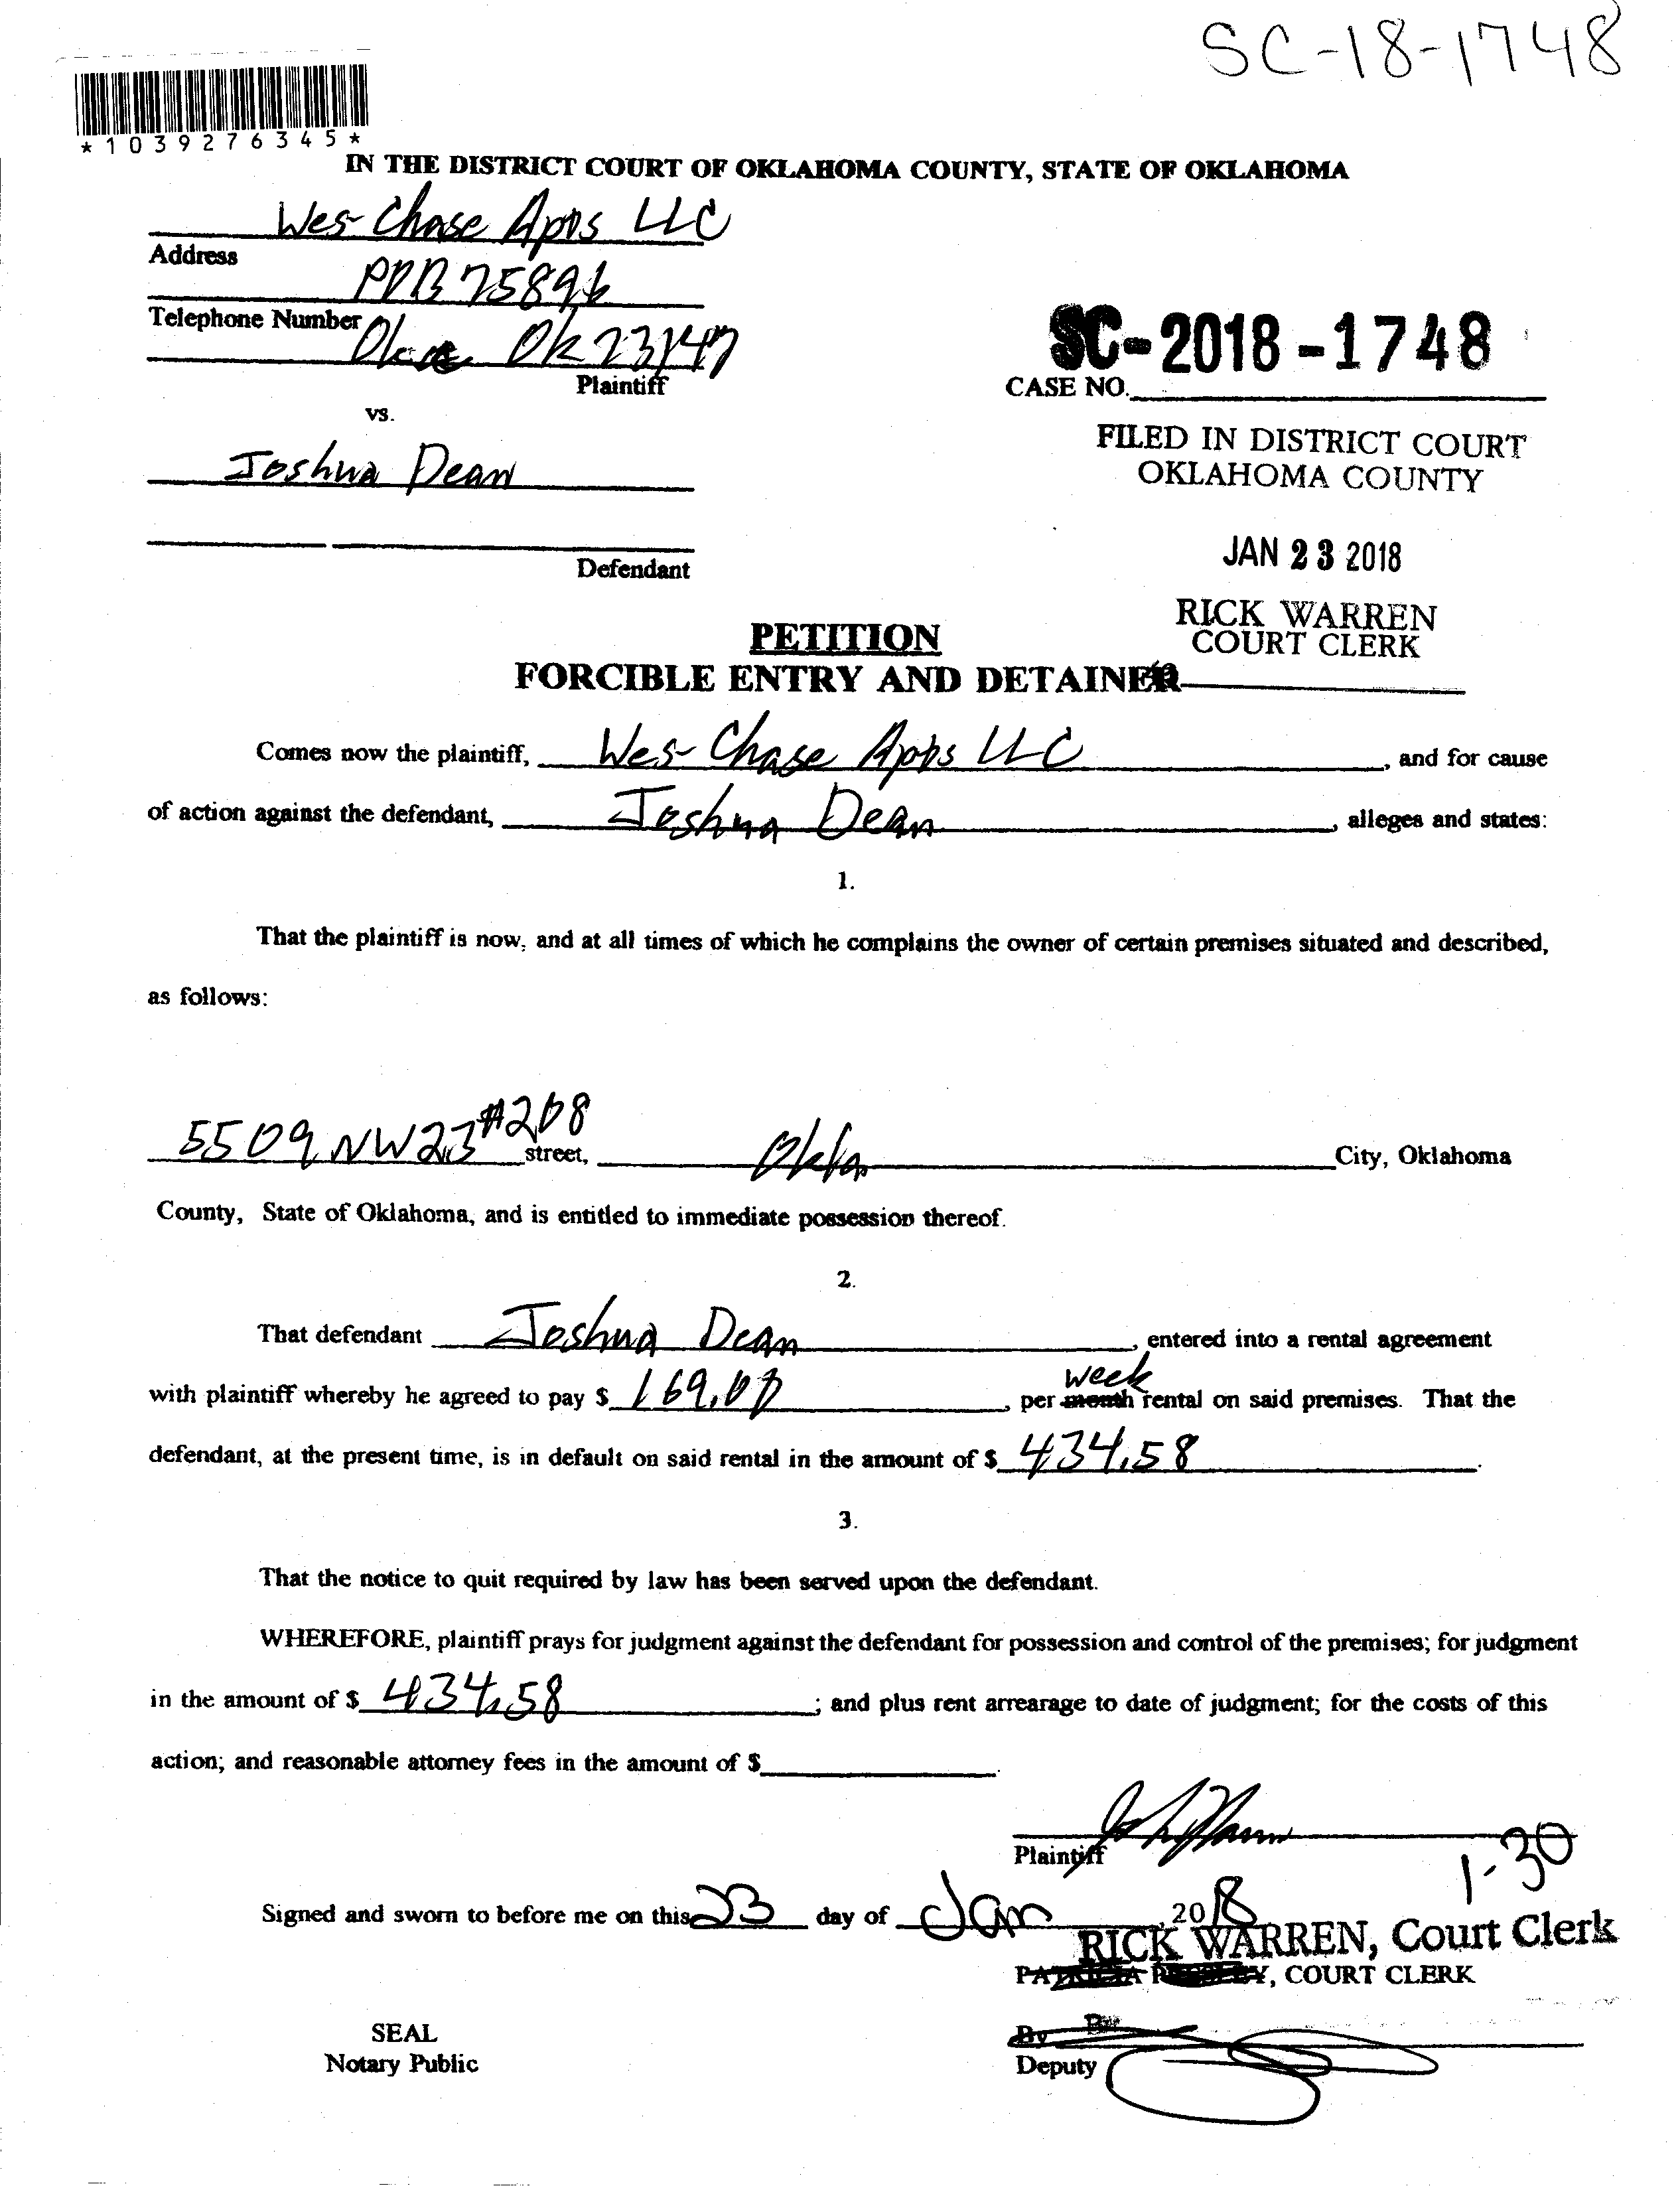 SC-18-1748
*1039276345*
IN THE DISTRICT COURT OF OKLAHOMA COUNTY, STATE OF OKLAHOMA
Wes-Chase Apts LLC
Address
POB 75896
Telephone Number
Ok 73147
Plaintiff
SC-2018-1748
CASE NO.
vs.
FILED IN DISTRICT COURT
OKLAHOMA COUNTY
Joshua Dean
Defendant
JAN 23 2018
RICK WARREN
COURT CLERK
PETITION
FORCIBLE ENTRY AND DETAINER
Comes now the plaintiff, Wes-Chase Apts LLC, and for cause
of action against the defendant, Joshua Dean, alleges and states:
1.
That the plaintiff is now, and at all times of which he complains the owner of certain premises situated and described,
as follows:
5509 NW 23 #208 street, Okla City, Oklahoma
County, State of Oklahoma, and is entitled to immediate possession thereof.
2.
That defendant Joshua Dean, entered into a rental agreement
with plaintiff whereby he agreed to pay $ 169.00, per month week rental on said premises. That the
defendant, at the present time, is in default on said rental in the amount of $ 434.58.
3.
That the notice to quit required by law has been served upon the defendant.
WHEREFORE, plaintiff prays for judgment against the defendant for possession and control of the premises; for judgment
in the amount of $ 434.58; and plus rent arrearage to date of judgment; for the costs of this
action; and reasonable attorney fees in the amount of $.
Plaintiff
1-30
Signed and sworn to before me on this 23 day of Jan, 2018
RICK WARREN, Court Clerk
, COURT CLERK
SEAL
By
Notary Public
Deputy